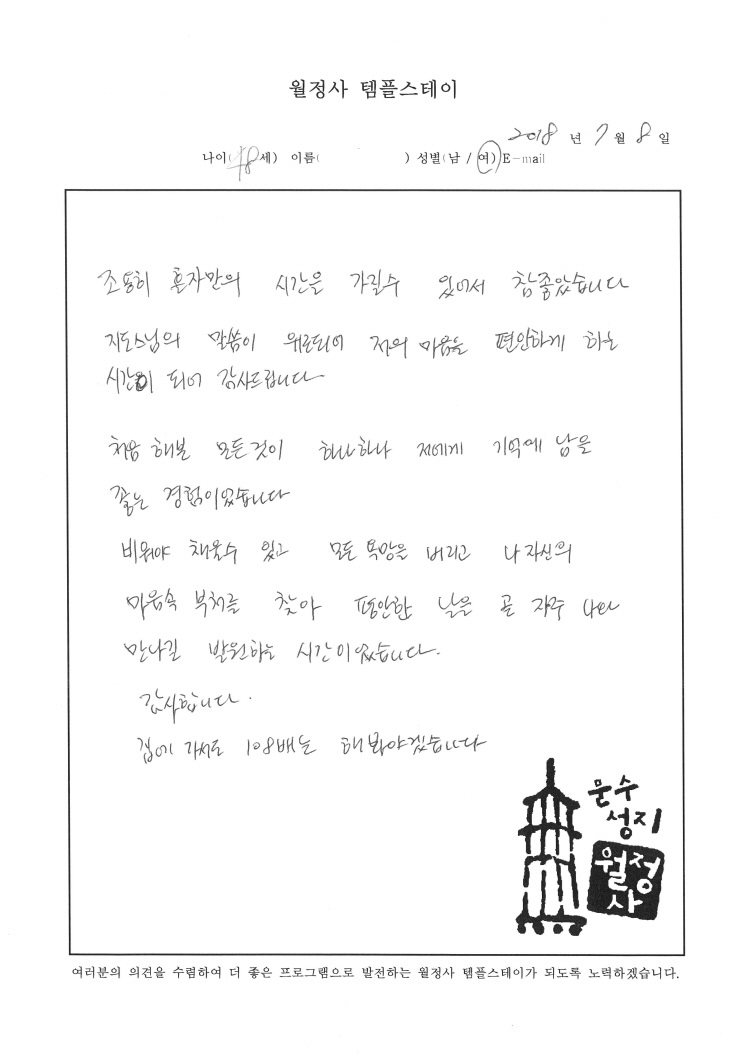 월정사 템플스테이
2018 년 7 월 8 일
나이(48세) 이름( ) 성별(남 / 여) E-mail
조용히 혼자만의 시간을 가질수 있어서 참좋았습니다
지도스님의 말씀이 위로되어 저의 마음을 편안하게 하는
시간이 되어 감사드립니다
처음 해본 모든것이 하나하나 저에게 기억에 남을
좋은 경험이었습니다
비워야 채울수 있고 모든 욕망을 버리고 나 자신의
마음속 부처를 찾아 평안한 날을 곧 자주
만나길 발원하는 시간이었습니다.
감사합니다.
집에 가서도 108배는 해봐야겠습니다
문수
성지
월정
사
여러분의 의견을 수렴하여 더 좋은 프로그램으로 발전하는 월정사 템플스테이가 되도록 노력하겠습니다.